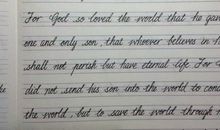 For God so loved the world that he gave
one and only son, that whoever believes in h
shall not perish but have eternal life For G
did not send his son into the world to cond
the world, but to save the world through